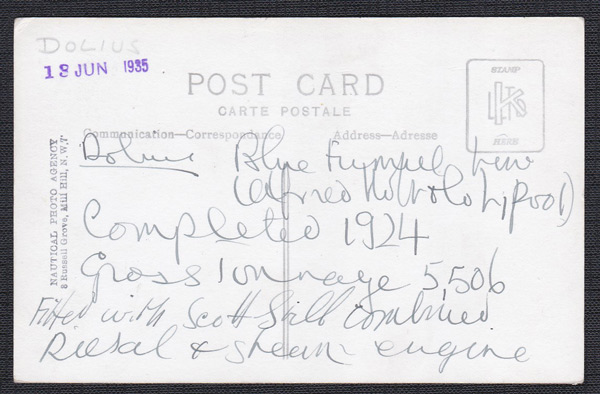 DOLIUS
18 JUN 1935
POST CARD
CARTE POSTALE
STAMP
LTD
HERE
Communication—Correspondence Address—Adresse
NAUTICAL PHOTO AGENCY
8 Russell Grove, Mill Hill, N.W.7
Dolius Blue Funnel Line
(Alfred Holt & Co L'pool)
Completed 1924
Gross Tonnage 5,506
Fitted with Scott Still combined
Diesal & steam engine